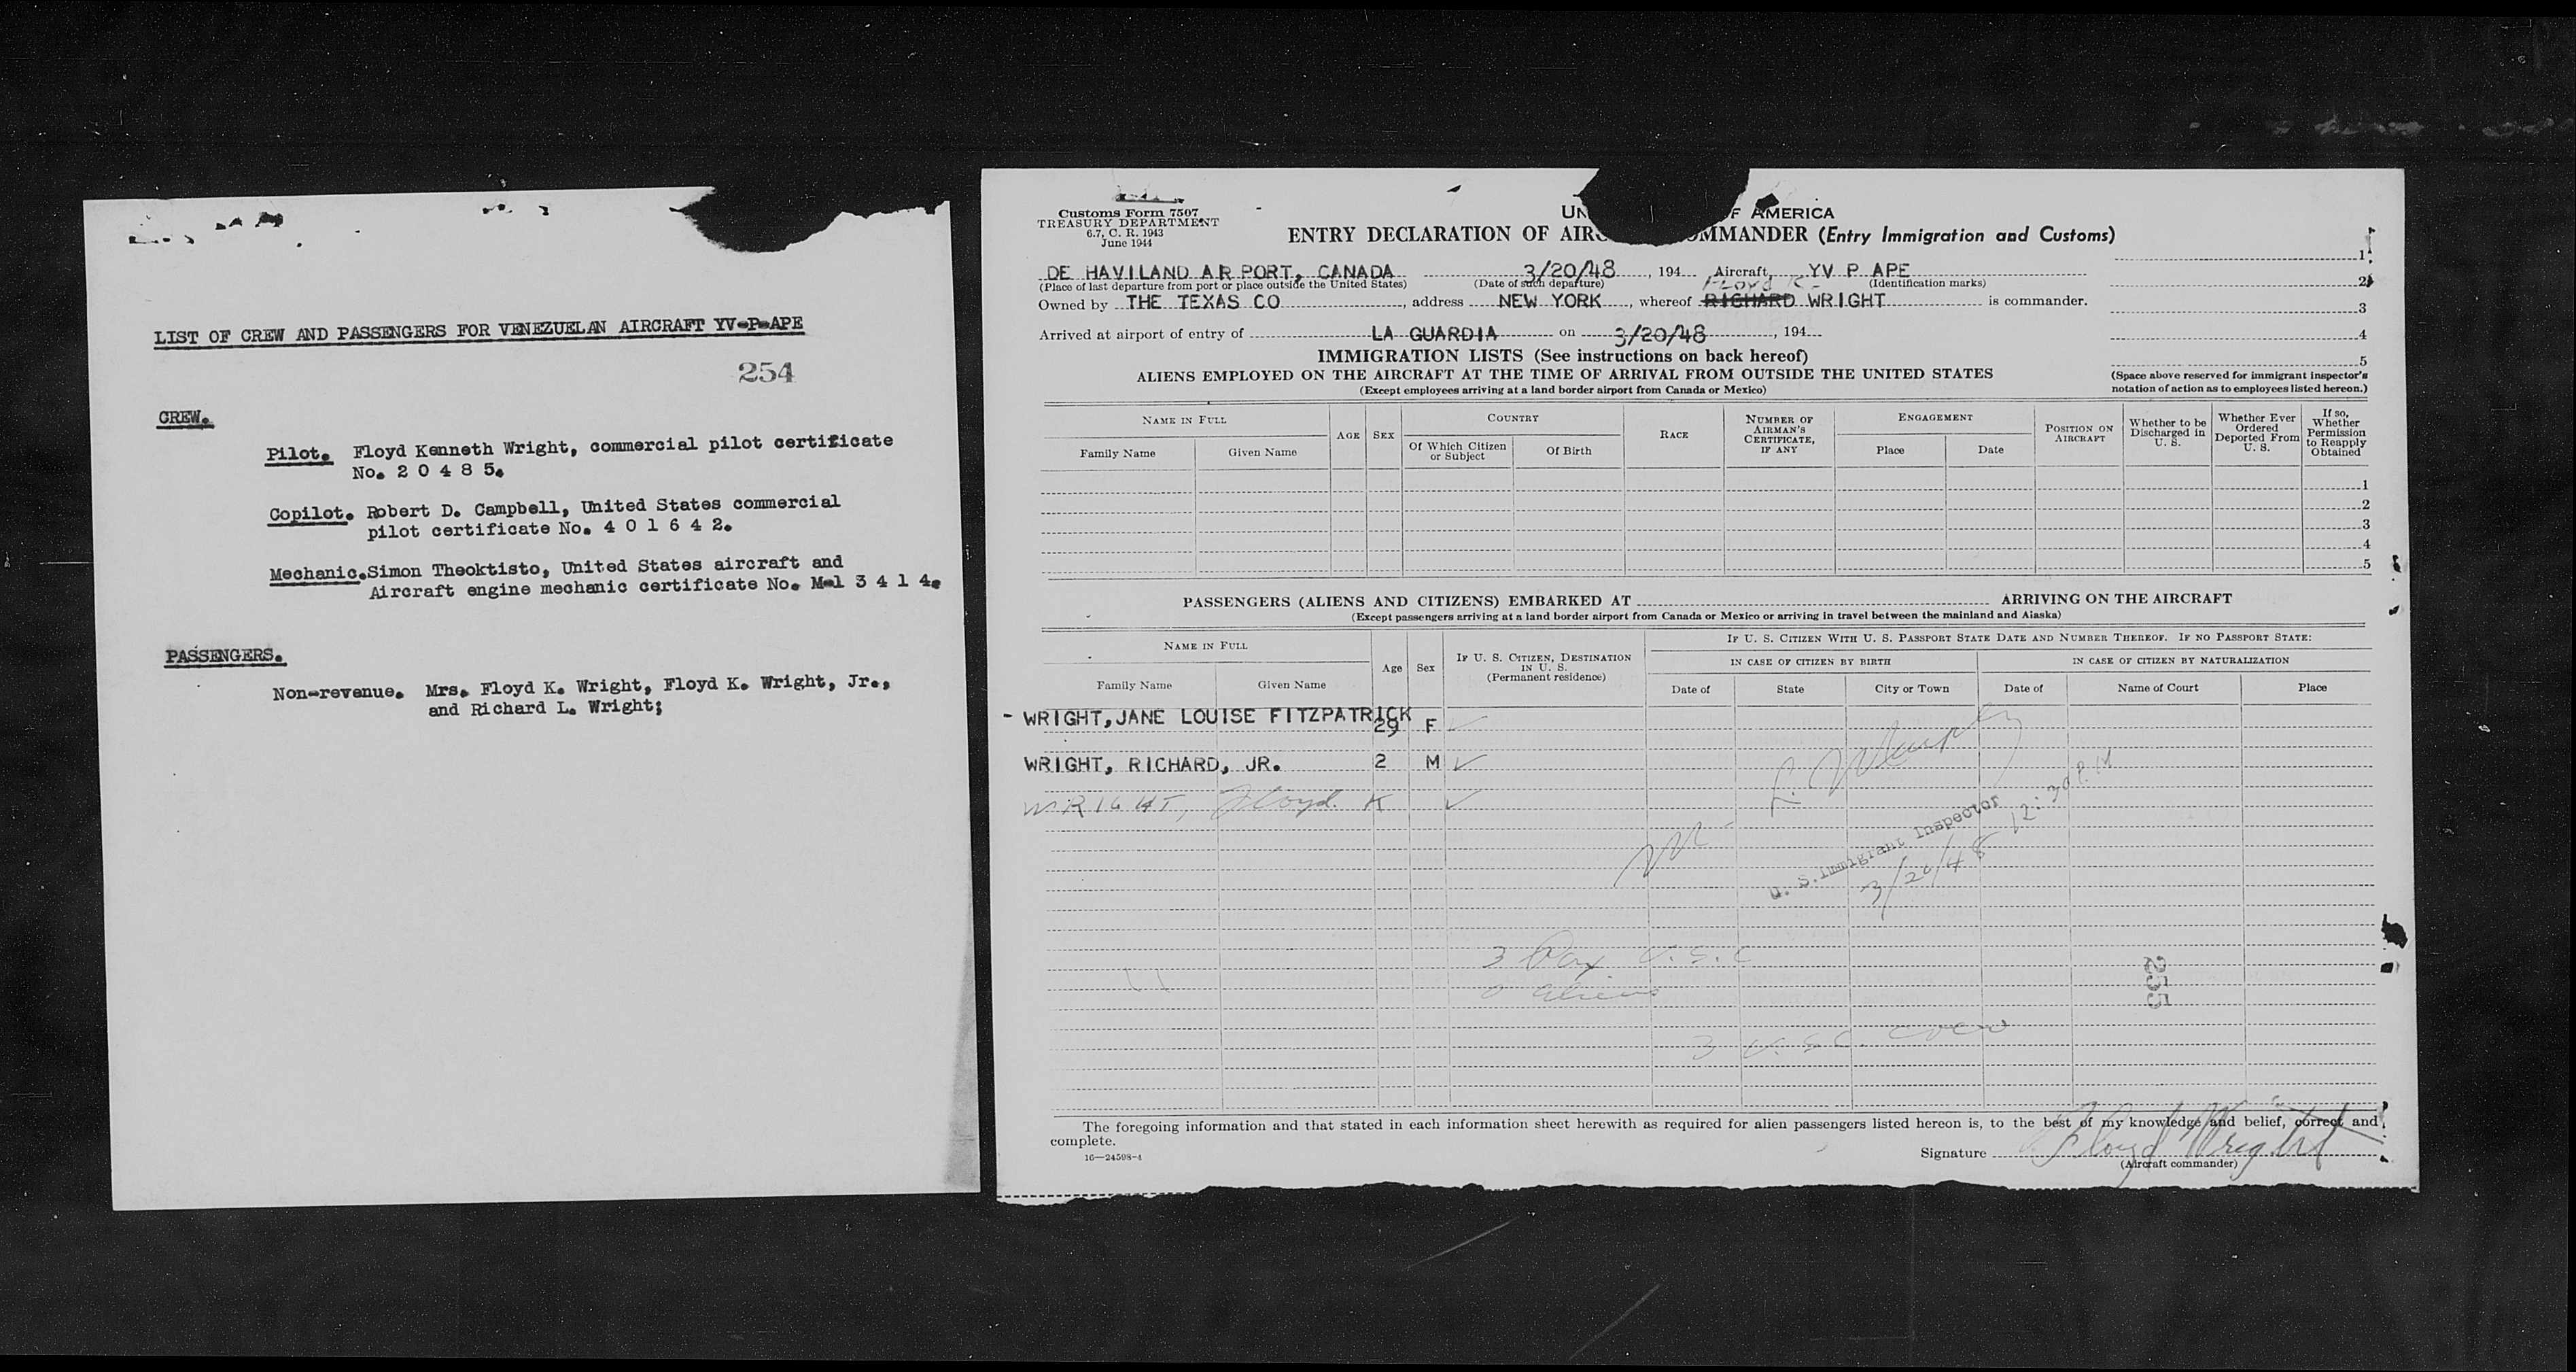 LIST OF CREW AND PASSENGERS FOR VENEZUELAN AIRCRAFT YV-P-APE
254
CREW.
Pilot. Floyd Kenneth Wright, commercial pilot certificate
No. 2 0 4 8 5.
Copilot. Robert D. Campbell, United States commercial
pilot certificate No. 4 0 1 6 4 2.
Mechanic. Simon Theoktisto, United States aircraft and
Aircraft engine mechanic certificate No. M-1 3 4 1 4.
PASSENGERS.
Non-revenue. Mrs. Floyd K. Wright, Floyd K. Wright, Jr.,
and Richard L. Wright;
Customs Form 7507
TREASURY DEPARTMENT
6.7, C. R. 1943
June 1944
UN F AMERICA
ENTRY DECLARATION OF AIRC OMMANDER (Entry Immigration and Customs)
DE HAVILAND AR PORT, CANADA 3/20/48, 194 Aircraft, YV P APE
(Place of last departure from port or place outside the United States) (Date of such departure) (Identification marks)
Floyd K.
Owned by THE TEXAS CO, address NEW YORK, whereof RICHARD WRIGHT is commander.
Arrived at airport of entry of LA GUARDIA on 3/20/48, 194
1
2
3
4
5
(Space above reserved for immigrant inspector's
notation of action as to employees listed hereon.)
IMMIGRATION LISTS (See instructions on back hereof)
ALIENS EMPLOYED ON THE AIRCRAFT AT THE TIME OF ARRIVAL FROM OUTSIDE THE UNITED STATES
(Except employees arriving at a land border airport from Canada or Mexico)
NAME IN FULL
Family Name
Given Name
AGE
SEX
COUNTRY
Of Which Citizen
or Subject
Of Birth
RACE
NUMBER OF
AIRMAN'S
CERTIFICATE,
IF ANY
ENGAGEMENT
Place
Date
POSITION ON
AIRCRAFT
Whether to be
Discharged in
U. S.
Whether Ever
Ordered
Deported From
U. S.
If so,
Whether
Permission
to Reapply
Obtained
1
2
3
4
5
PASSENGERS (ALIENS AND CITIZENS) EMBARKED AT ARRIVING ON THE AIRCRAFT
(Except passengers arriving at a land border airport from Canada or Mexico or arriving in travel between the mainland and Alaska)
NAME IN FULL
Family Name
Given Name
Age
Sex
IF U. S. CITIZEN, DESTINATION
IN U. S.
(Permanent residence)
IF U. S. CITIZEN WITH U. S. PASSPORT STATE DATE AND NUMBER THEREOF. IF NO PASSPORT STATE:
IN CASE OF CITIZEN BY BIRTH
IN CASE OF CITIZEN BY NATURALIZATION
Date of
State
City or Town
Date of
Name of Court
Place
- WRIGHT, JANE LOUISE FITZPATRICK
29 F ✓
WRIGHT, RICHARD, JR. 2 M ✓
WRIGHT, Floyd K ✓
U. S. Immigrant Inspector
3/20/48 12:30 P.M
3 Pax. U.S.C
0 aliens
3 U.S.C. crew
255
The foregoing information and that stated in each information sheet herewith as required for alien passengers listed hereon is, to the best of my knowledge and belief, correct and
complete.
16—24598-4
Signature Floyd Wright
(Aircraft commander)